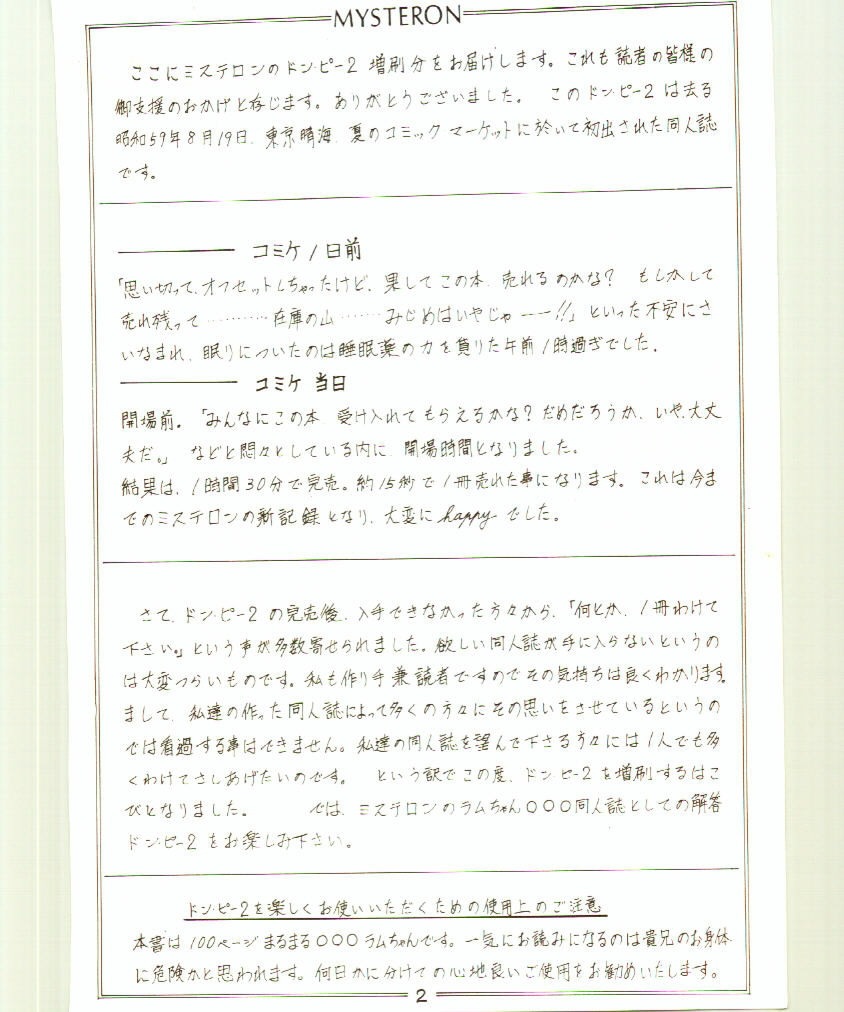 MYSTERON
ここにミステロンのドン・ピー2 増刷分をお届けします。これも読者の皆様の
御支援のおかげと存じます。ありがとうございました。 このドン・ピー2 は去る
昭和59年8月19日、東京晴海、夏のコミック マーケットに於いて初出された同人誌
です。
コミケ 1日前
「思い切って、オフセットしちゃったけど、果してこの本、売れるのかな? もしかして
売れ残って…………在庫の山………みじめはいやじゃーー!!」といった不安にさ
いなまれ、眠りについたのは睡眠薬の力を借りた午前1時過ぎでした。
コミケ 当日
開場前。「みんなにこの本、受け入れてもらえるかな?だめだろうか、いや、大丈
夫だ。」 などと悶々としている内に、開場時間となりました。
結果は、1時間30分で完売。約15秒で1冊売れた事になります。これは今ま
でのミステロンの新記録となり、大変にhappyでした。
さて、ドン・ピー2 の完売後、入手できなかった方々から、「何とか、1冊わけて
下さい。」という事が多数寄せられました。欲しい同人誌が手に入らないというの
は大変つらいものです。私も作り手兼読者ですのでその気持ちは良くわかります。
まして、私達の作った同人誌によって多くの方々にその思いをさせているというの
では看過する事はできません。私達の同人誌を望んで下さる方々には1人でも多
くわけてさしあげたいのです。 という訳でこの度、ドン・ピー2を増刷するはこ
びとなりました。 では、ミステロンのラムちゃん〇〇〇同人誌としての解答
ドン・ピー2 をお楽しみ下さい。
ドン・ピー2を楽しくお使いいただくための使用上のご注意
本書は100ページまるまる〇〇〇ラムちゃんです。一気にお読みになるのは貴兄のお身体
に危険かと思われます。何日かに分けての心地良いご使用をお勧めいたします。
2